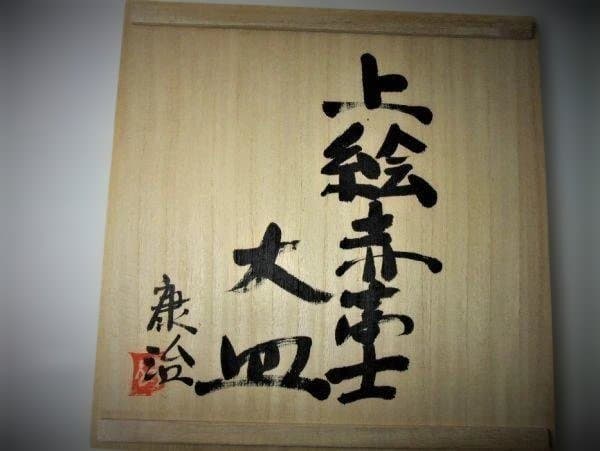 上絵赤富士
大皿
康治